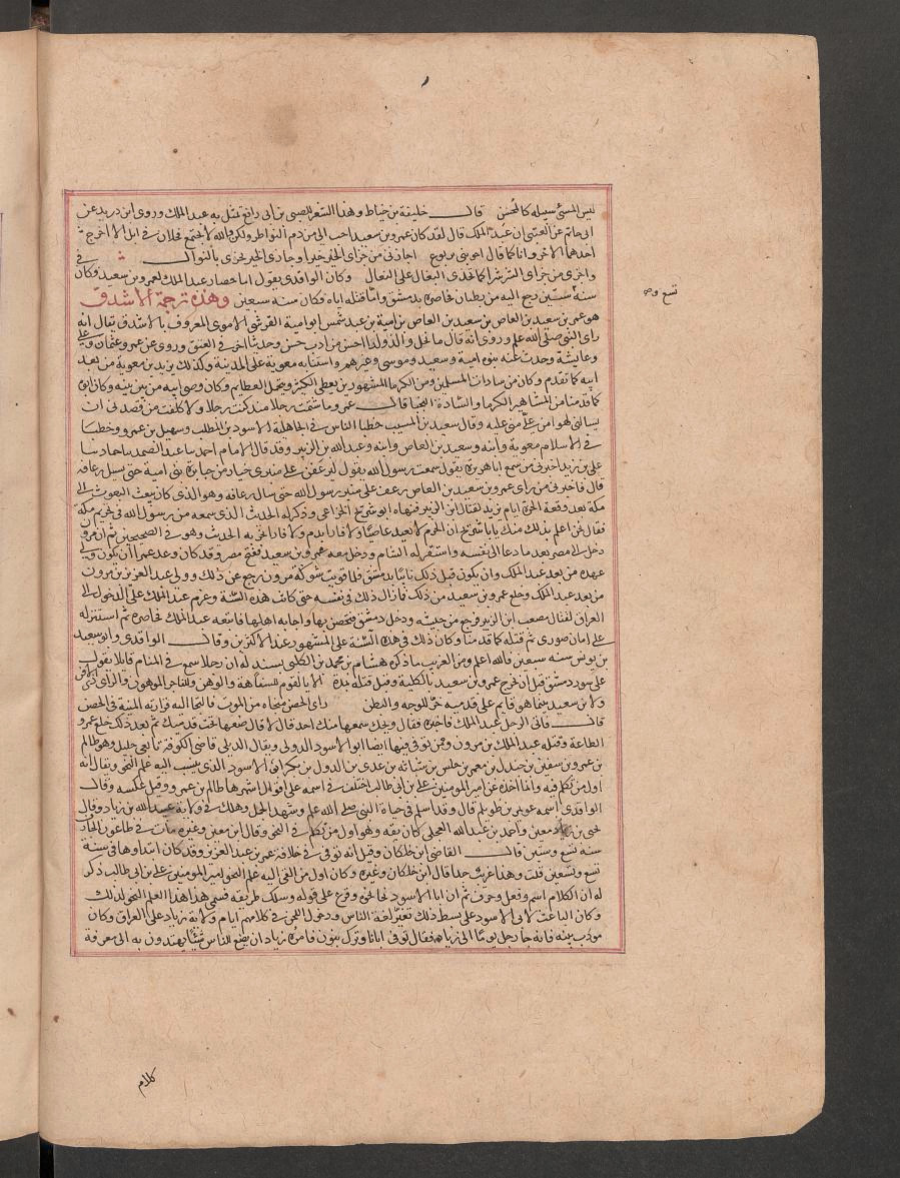 ليس المسئ سبيله كالمحسن قال خليفة بن خياط وهذا الشعر للضبي بن ابي رافع تمثل به عبد الملك وروى ابن دريد عن
ابي حاتم عن العتبي ان عبد الملك قال لقد كان عمرو بن سعيد احب الي من دم النواظر ولكن والله لا يجتمع فحلان في ابل الا اخرج
احدهما الاخر وانا كما قال اخو بني يربوع اجازي من جزاى الخير خيرا وجازى الخير يجزى بالنوال
واجزي من جزاى الشر شرا كما تحذى النعال على النعال وكان الواقدي يقول اما حصار عبد الملك لعمرو بن سعيد فكان في
سنة ستين رجع اليه من بطنان فحاصره بدمشق واما قتله اياه فكان سنة سبعين وهذه ترجمة الاشدق
تسع وص
هو عمرو بن سعيد بن العاص بن سعيد بن العاص بن امية بن عبد شمس ابو امية القرشي الاموى المعروف بالاشدق يقال انه
راى النبي صلى الله عليه وروى انه قال ما نحل والد ولدا احسن من ادب حسن وحديثا اخر في العتق وروى عن عمر وعثمان وعلي
وعايشة وحدث عنه بنوه امية وسعيد وموسى وغيرهم واستنابه معوية على المدينة وكذلك يزيد بن معوية من بعد
ابيه كما تقدم وكان من سادات المسلمين ومن الكرما المشهورين يعطي الكثير ويتحمل العظايم وكان وصي ابيه من بين بنيه وكان ابوه
كما قدمنا من المشاهير الكرما والسادة النجبا قال عمرو ما شتمت رجلا منذ كنت رجلا ولا كلفت من قصدني ان
يسالني لهو امن علي مني عليه وقال سعيد بن المسيب خطبا الناس في الجاهلية الاسود بن المطلب وسهيل بن عمرو وخطبا
في الاسلام معوية وابنه وسعيد بن العاص وابنه وعبد الله بن الزبير وقد قال الامام احمد ثنا عبد الصمد ثنا حماد ثنا
علي بن زيد اخبرني من سمع ابا هريرة يقول سمعت رسول الله يقول ليرعفن على منبري جبار من جبابرة بني امية حتى يسيل رعافه
قال فاخبرني من راى عمرو بن سعيد بن العاص رعف على منبر رسول الله حتى سال رعافه وهو الذي كان يبعث البعوث الى
مكة بعد وقعة الحرة ايام يزيد لقتال ابن الزبير فنهاه ابو شريح الخزاعي وذكر له الحديث الذي سمعه من رسول الله في تحريم مكة
فقال نحن اعلم بذلك منك يا با شريح ان الحرم لا يعيذ عاصيا ولا فارا بدم ولا فارا بخربه الحديث وهو في الصحيحين ثم ان مرون
دخل الى مصر بعد ما دعا الى نفسه واستقر له الشام ودخل معه عمرو بن سعيد ففتح مصر وقد كان وعد عمرا ان يكون ولي
عهده من بعد عبد الملك وان يكون قبل ذلك نايبا بدمشق فلما قويت شوكة مرون رجع عن ذلك وولى عبد العزيز بن مرون
من بعد عبد الملك وخلع عمرو بن سعيد من ذلك فما زال ذلك في نفسه حتى كانت هذه السنة وعزم عبد الملك على الدخول الى
العراق لقتال مصعب ابن الزبير فرجع من جيشه ودخل دمشق فتحصن بها واجابه اهلها فاتبعه عبد الملك فحاصره ثم استنزله
على امان صوري ثم قتله كما قدمنا وكان ذلك في هذه السنة على المشهور عند الاكثرين وقال الواقدي وابو سعيد
بن يونس سنة سبعين فالله اعلم ومن الغريب ما ذكره هشام بن محمد بن الكلبي بسند له ان رجلا سمع في المنام قايلا يقول
على سور دمشق قبل ان يخرج عمرو بن سعيد بالكلية وقبل قتله بمدة الا يا لقوم للسفاهة والوهن وللفاجر الموهون والراى ذي الافن
ولابن سعيد بينما هو قايم على قدميه خر للوجه والبطن راى الحصن منجاة من الموت فالتجا اليه فزارته المنية في الحصن
قال فاتى الرجل عبد الملك فاخبره فقال ويحك سمعها منك احد قال لا قال فضعها تحت قدميك ثم بعد ذلك خلع عمرو
الطاعة وقتله عبد الملك بن مرون وممن توفي فيها ايضا ابو الاسود الدولي ويقال الديلي قاضي الكوفة تابعي جليل وهو ظالم
بن عمرو بن سفين بن جندل بن معمر بن حلس بن شباثة بن عدي بن الدول بن بكر ابو الاسود الذي ينسب اليه علم النحو ويقال انه
اول من تكلم فيه وانما اخذه عن امير المومنين علي بن ابي طالب اختلف في اسمه على اقوال اشهرها ظالم بن عمرو وقيل عكسه وقال
الواقدي اسمه عويمر بن ظويلم قال وقد اسلم في حياة النبي صلى الله عليه وشهد الجمل وهلك في ولاية عبيد الله بن زياد وقال
يحيى بن معين واحمد بن عبد الله العجلي كان ثقة وهو اول من تكلم في النحو وقال ابن معين وغيره مات في طاعون الجارف
سنة تسع وستين قال القاضي ابن خلكان وقيل انه توفي في خلافة عمر بن عبد العزيز وقد كان ابتداوها في سنة
تسع وتسعين قلت وهذا غريب جدا قال ابن خلكان وغيره وكان اول من القى اليه علم النحو امير المومنين علي بن ابي طالب ذكر
له ان الكلام اسم وفعل وحرف ثم ان ابا الاسود نحا نحوه وفرع على قوله وسلك طريقه فسمي هذا العلم النحو لذلك
وكان الباعث لابي الاسود على بسط ذلك تغير لغة الناس ودخول اللحن في كلامهم ايام ولاية زياد على العراق وكان
مودب بنيه فانه جا رجل يوما الى زياد فقال توفي ابانا وترك بنون فامره زياد ان يضع للناس شيئا يهتدون به الى معرفة
كلام